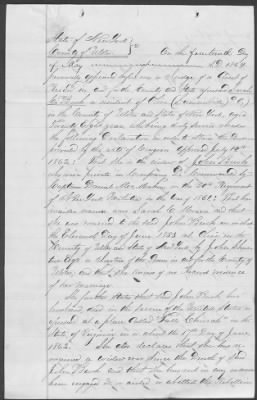 State of New York
County of Ulster SS On the fourteenth Day
of May A.D. 1864
personally appeared before me a Judge of a Court of
Record in and for the County and State aforesaid Sarah
a resident of
in the County of Ulster and State of New York aged
Twenty eight years who being duly sworn makes
the following Declaration in order to obtain the
provided by the act of Congress approved July 14th
1862: That she is the widow of John Bush
who was private in Company Commanded by
Captain Daniel McMahon in the 20th Regiment
of New York in the war of 1861: That her
maiden name was Sarah and that
she was married to the said John Bush on or about
the Eleventh Day of June 1853 at Olive in the
County of Ulster and State of New York by John
of the Town in and for the County of
Ulster, and that she knows of no Record evidence
of her marriage.
She further states that said John Bush her
husband died in the service of the United States as
aforesaid at a place Called Falls Church in the
State of Virginia on or about the 17th Day of June
1862. She also declares that she has re-
mained a widow ever since the Death of said
John Bush and that she has not in any manner
been engaged in or aided or abetted the Rebellion